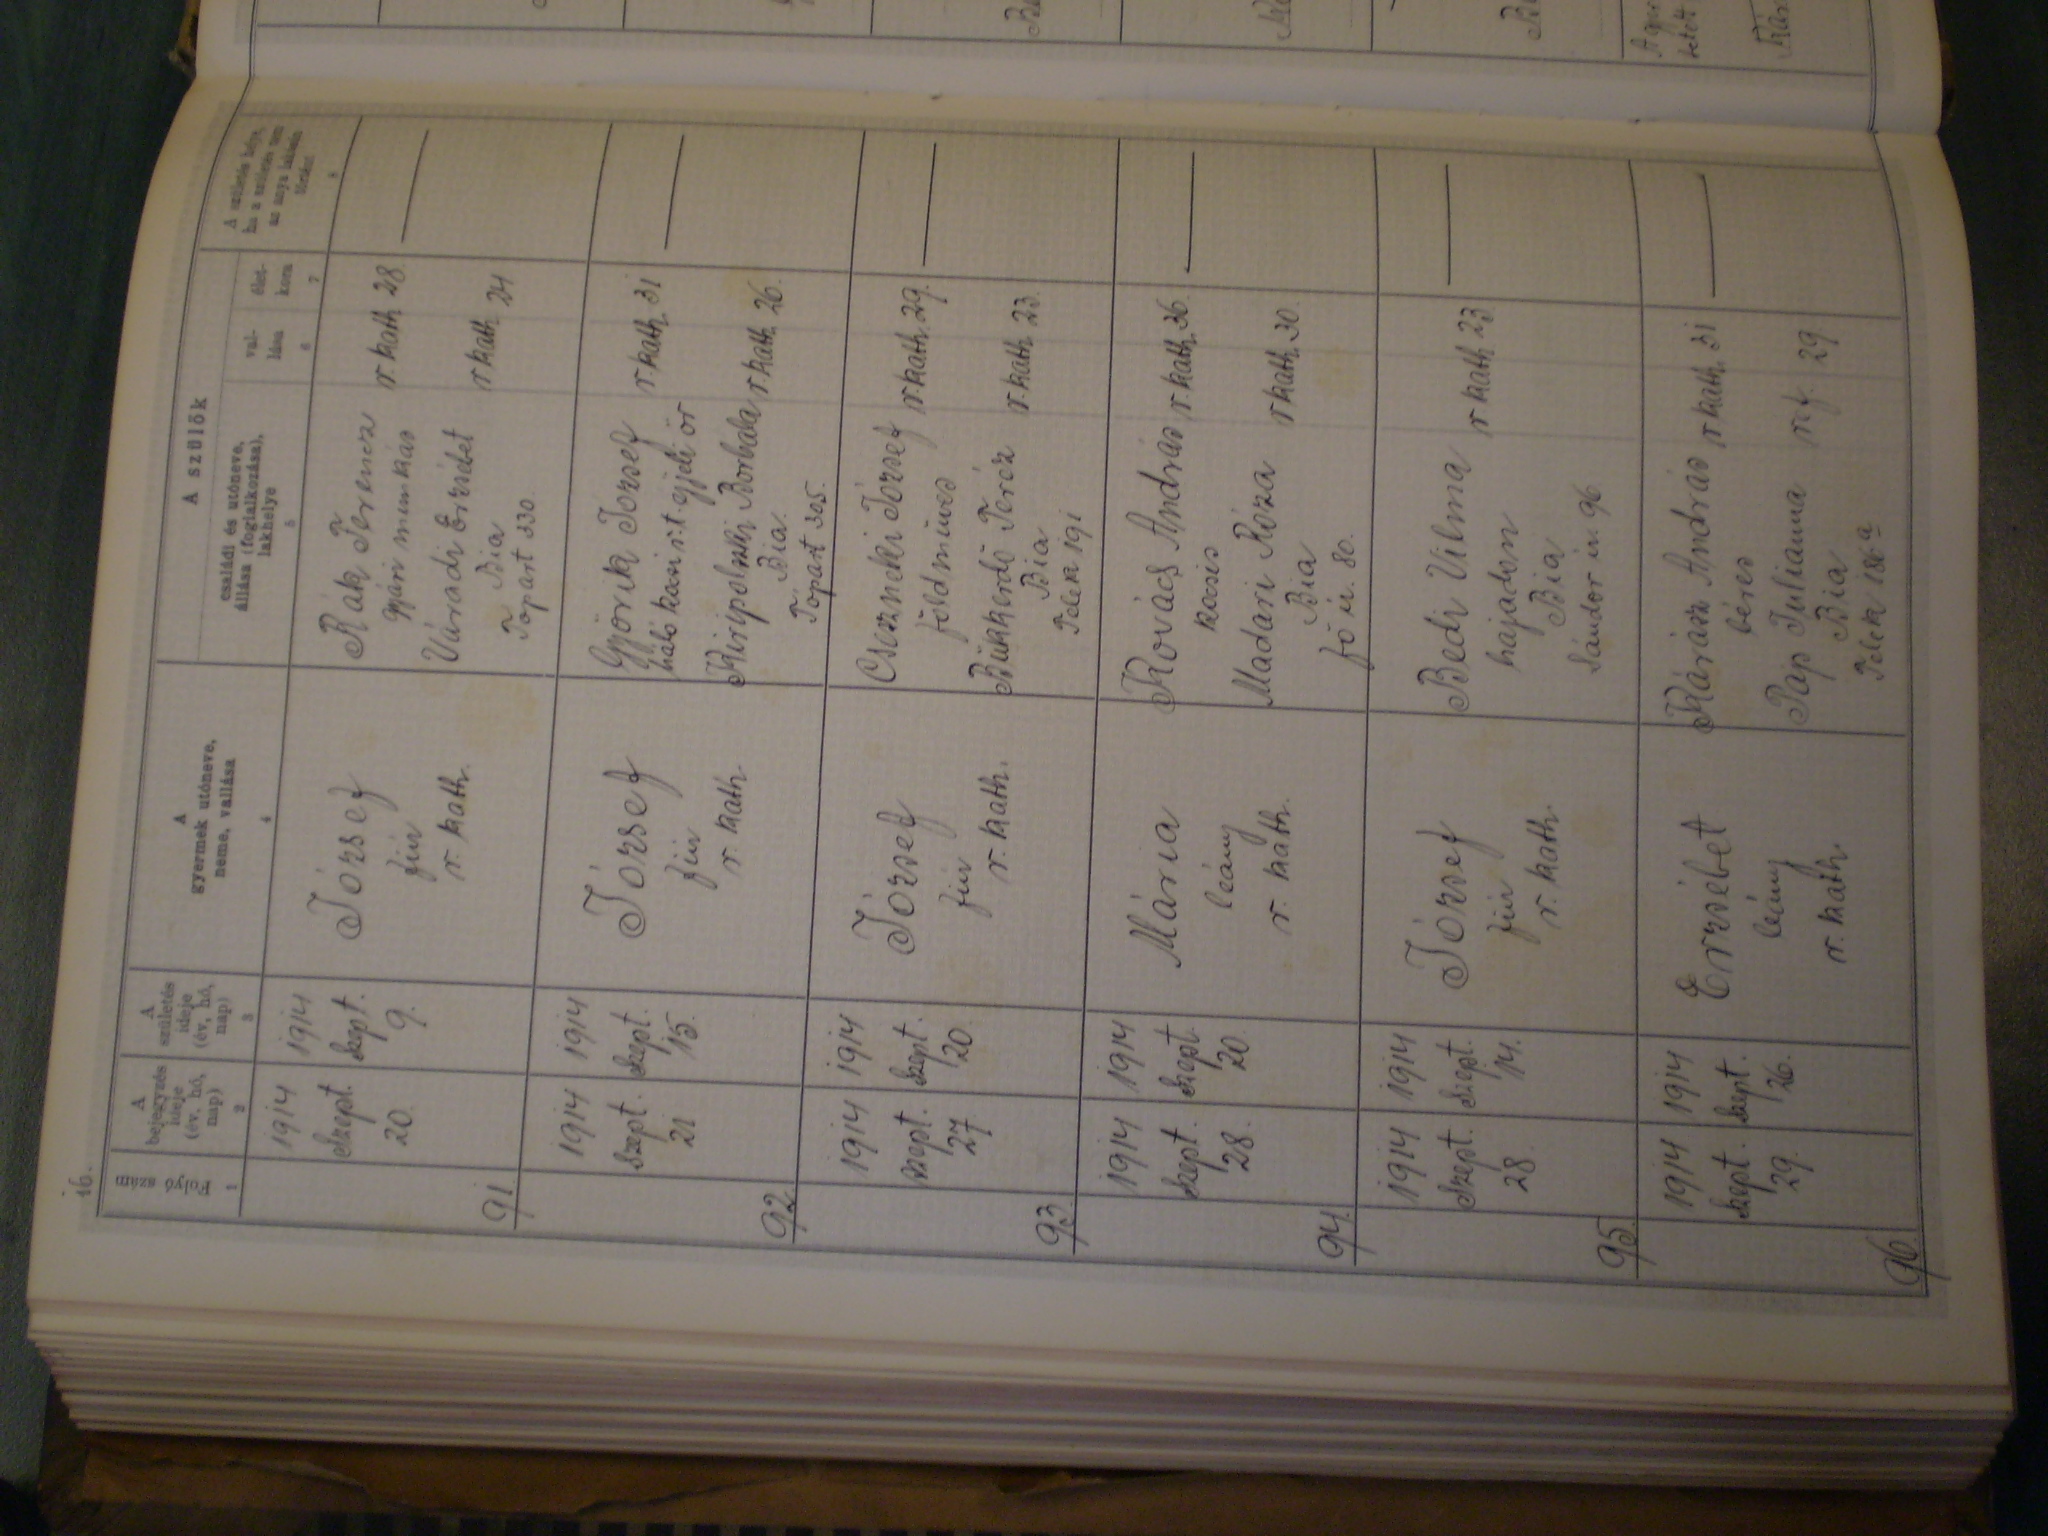 16.
A szülők
A
bejegyzés
ideje
(év, hó,
nap)
A
születés
ideje
(év, hó,
nap)
A
gyermek utóneve,
neme, vallása
családi és utóneve,
állása (foglalkozása),
lakhelye
val-
lása
élet-
kora
A születés helye,
ha a születés nem
az anya lakásán
történt
1
2
3
4
5
6
7
8
91
1914
Szept.
20.
1914
Szept.
9.
József
fiú
r. kath.
Rák Ferencz
gyári munkás
r kath 28
Váradi Erzsébet
r kath 24
Bia
Tópart 330.
92
1914
Szept.
21
1914
Szept.
15.
József
fiú
r. kath.
Györik József
r. kath. 31
Borbála r kath 26.
Bia.
Tópart 305.
93
1914
Szept.
27
1914
Szept.
20
József
fiú
r. kath.
József
r kath. 29.
földműves
Teréz
r. kath 23.
Bia
Telek 191
94.
1914
Szept.
28.
1914
Szept.
20.
Mária
leány
r. kath.
Kovács András r. kath. 36.
kocsis
Madari Róza
r kath. 30.
Bia
fő u. 80.
95.
1914
Szept.
28.
1914
Szept.
14.
József
fiú
r. kath.
Bedi Vilma
r kath 23
hajadon
Bia
Sándor u. 96
96.
1914
Szept.
29.
1914
Szept.
26.
Erzsébet
leány
r. kath.
Kárász András r kath. 31
béres
Pap Julianna
ref. 29
Bia
Telek 186 a